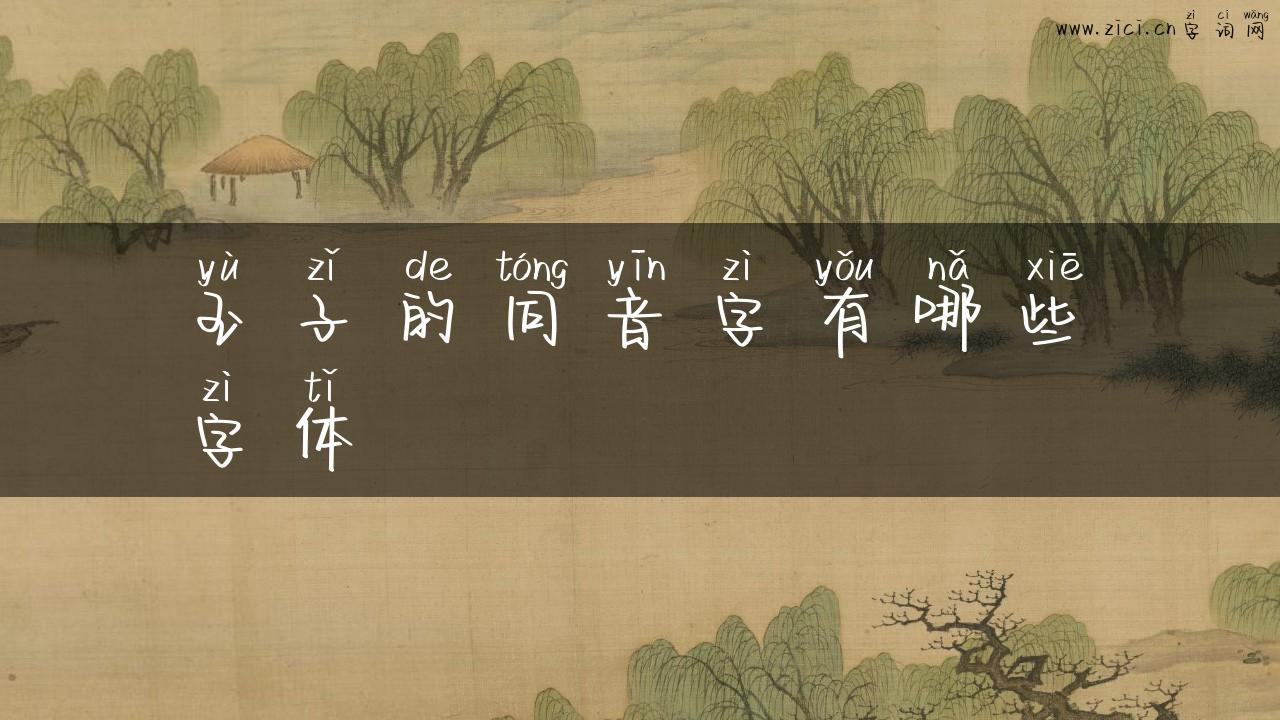 zì cí wǎng
www.zici.cn 字 词 网
yù zǐ de tóng yīn zì yǒu nǎ xiē
玉 子 的 同 音 字 有 哪 些
zì tǐ
字 体